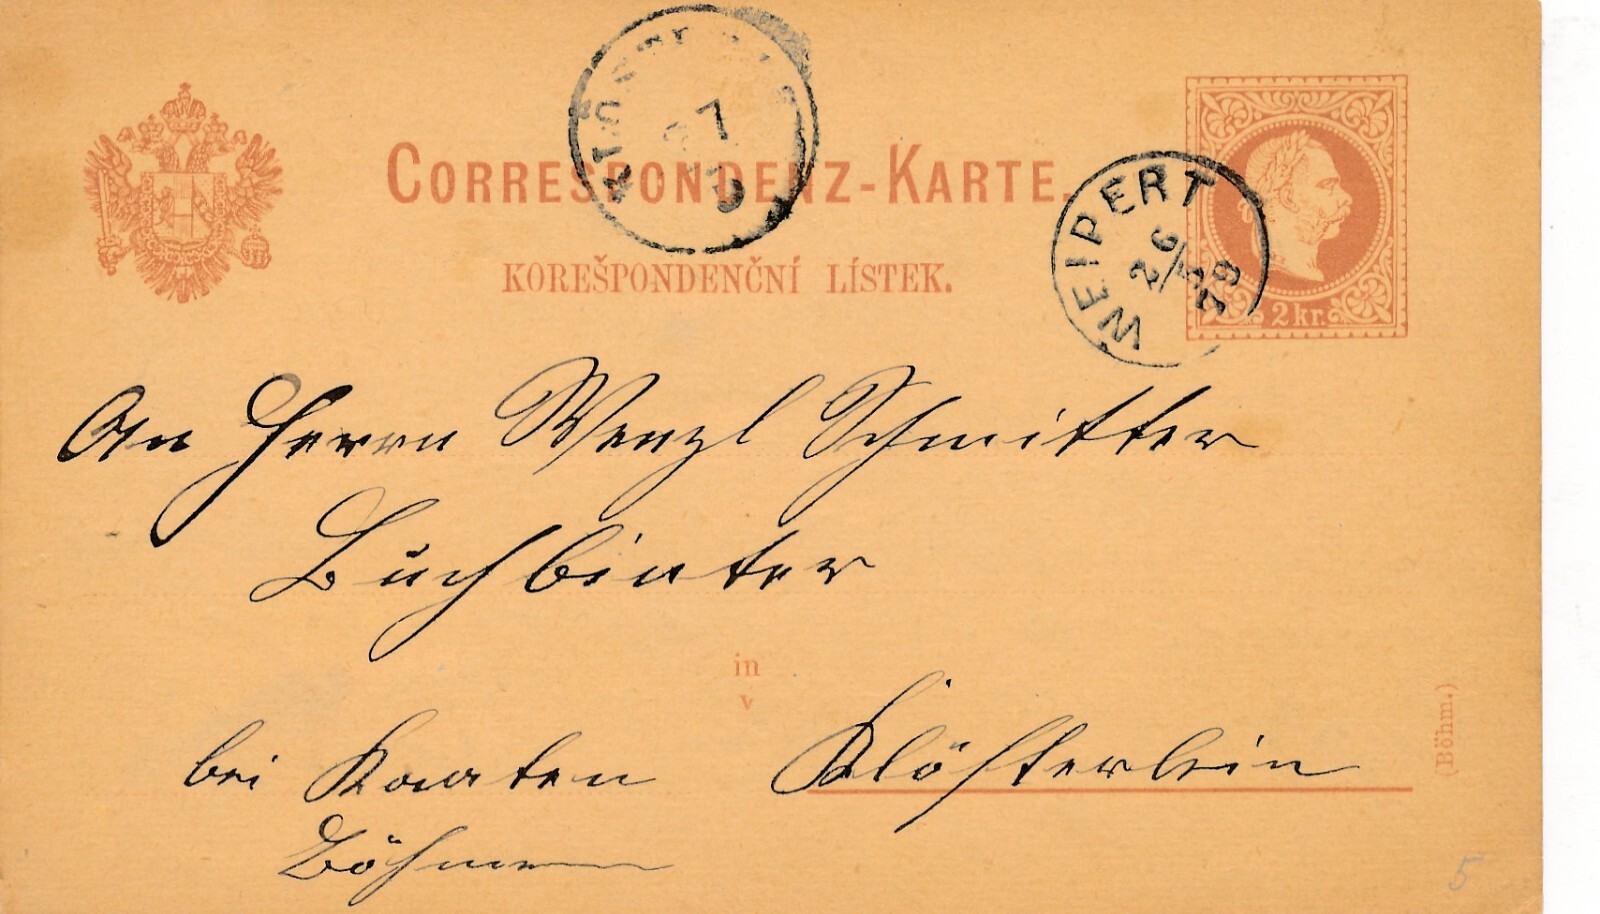 CORRESPONDENZ-KARTE.
KOREŠPONDENČNÍ LÍSTEK.
WEIPERT
26/5
79
2 kr.
27
79
An Herrn Wenzl Schmitter
Buchbinter
in
v
bei Kaaten Klösterlein
Böhmen
(Böhm.)
5